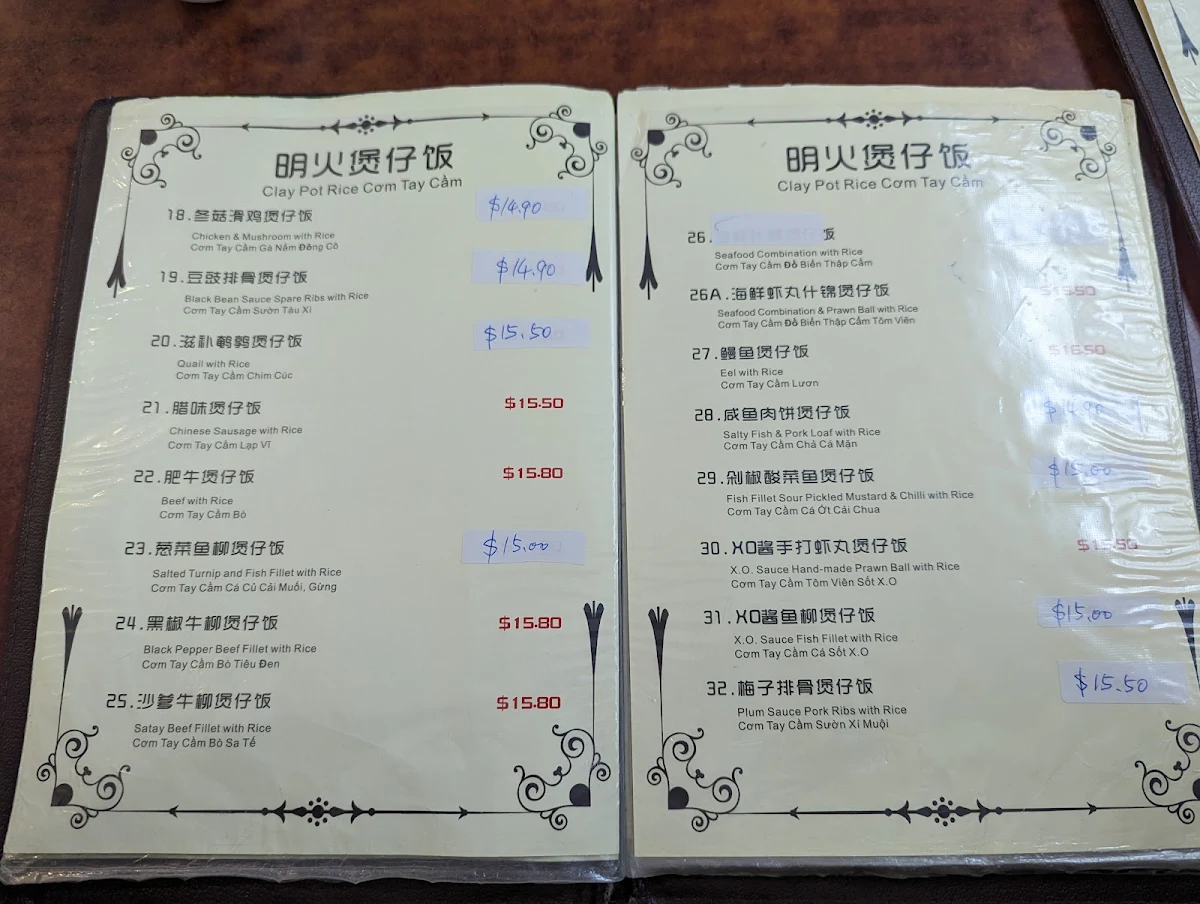 明火煲仔饭
Clay Pot Rice Cơm Tay Cầm
18.冬菇滑鸡煲仔饭 $14.90
Chicken & Mushroom with Rice
Cơm Tay Cầm Gà Nấm Đông Cô
19.豆豉排骨煲仔饭 $14.90
Black Bean Sauce Spare Ribs with Rice
Cơm Tay Cầm Sườn Tàu Xì
20.滋补鹌鹑煲仔饭 $15.50
Quail with Rice
Cơm Tay Cầm Chim Cúc
21.腊味煲仔饭 $15.50
Chinese Sausage with Rice
Cơm Tay Cầm Lạp Vĩ
22.肥牛煲仔饭 $15.80
Beef with Rice
Cơm Tay Cầm Bò
23.葱菜鱼柳煲仔饭 $15.00
Salted Turnip and Fish Fillet with Rice
Cơm Tay Cầm Cá Củ Cải Muối, Gừng
24.黑椒牛柳煲仔饭 $15.80
Black Pepper Beef Fillet with Rice
Cơm Tay Cầm Bò Tiêu Đen
25.沙爹牛柳煲仔饭 $15.80
Satay Beef Fillet with Rice
Cơm Tay Cầm Bò Sa Tế
明火煲仔饭
Clay Pot Rice Cơm Tay Cầm
26. 饭
Seafood Combination with Rice
Cơm Tay Cầm Đồ Biển Thập Cẩm
26A.海鲜虾丸什锦煲仔饭
Seafood Combination & Prawn Ball with Rice
Cơm Tay Cầm Đồ Biển Thập Cẩm Tôm Viên
27.鳗鱼煲仔饭 $16.50
Eel with Rice
Cơm Tay Cầm Lươn
28.咸鱼肉饼煲仔饭 $14.90
Salty Fish & Pork Loaf with Rice
Cơm Tay Cầm Chả Cá Mặn
29.剁椒酸菜鱼煲仔饭 $15.00
Fish Fillet Sour Pickled Mustard & Chilli with Rice
Cơm Tay Cầm Cá Ớt Cải Chua
30.XO酱手打虾丸煲仔饭
X.O. Sauce Hand-made Prawn Ball with Rice
Cơm Tay Cầm Tôm Viên Sốt X.O
31.XO酱鱼柳煲仔饭 $15.00
X.O. Sauce Fish Fillet with Rice
Cơm Tay Cầm Cá Sốt X.O
32.梅子排骨煲仔饭 $15.50
Plum Sauce Pork Ribs with Rice
Cơm Tay Cầm Sườn Xí Muội